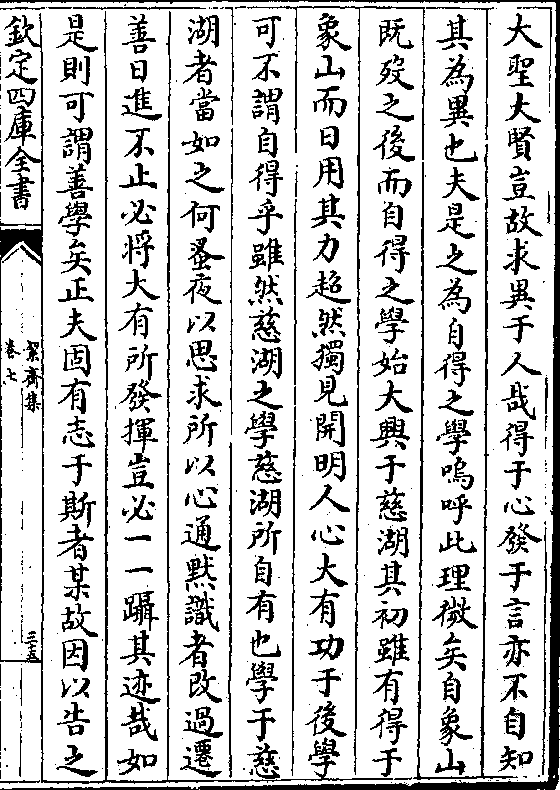 大聖大賢豈故求異于人哉得于心發于言亦不自知
其為異也夫是之為自得之學嗚呼此理微矣自象山
既歿之後而自得之學始大興于慈湖其初雖有得于
象山而日用其力超然獨見開明人心大有功于後學
可不謂自得乎雖然慈湖之學慈湖所自有也學于慈
湖者當如之何蚤夜以思求所以心通黙識者改過遷
善日進不止必將大有所發揮豈必一一躡其迹哉如
是則可謂善學矣正夫固有志于斯者某故因以告之
欽定四庫全書
絜齋集
卷七
三五